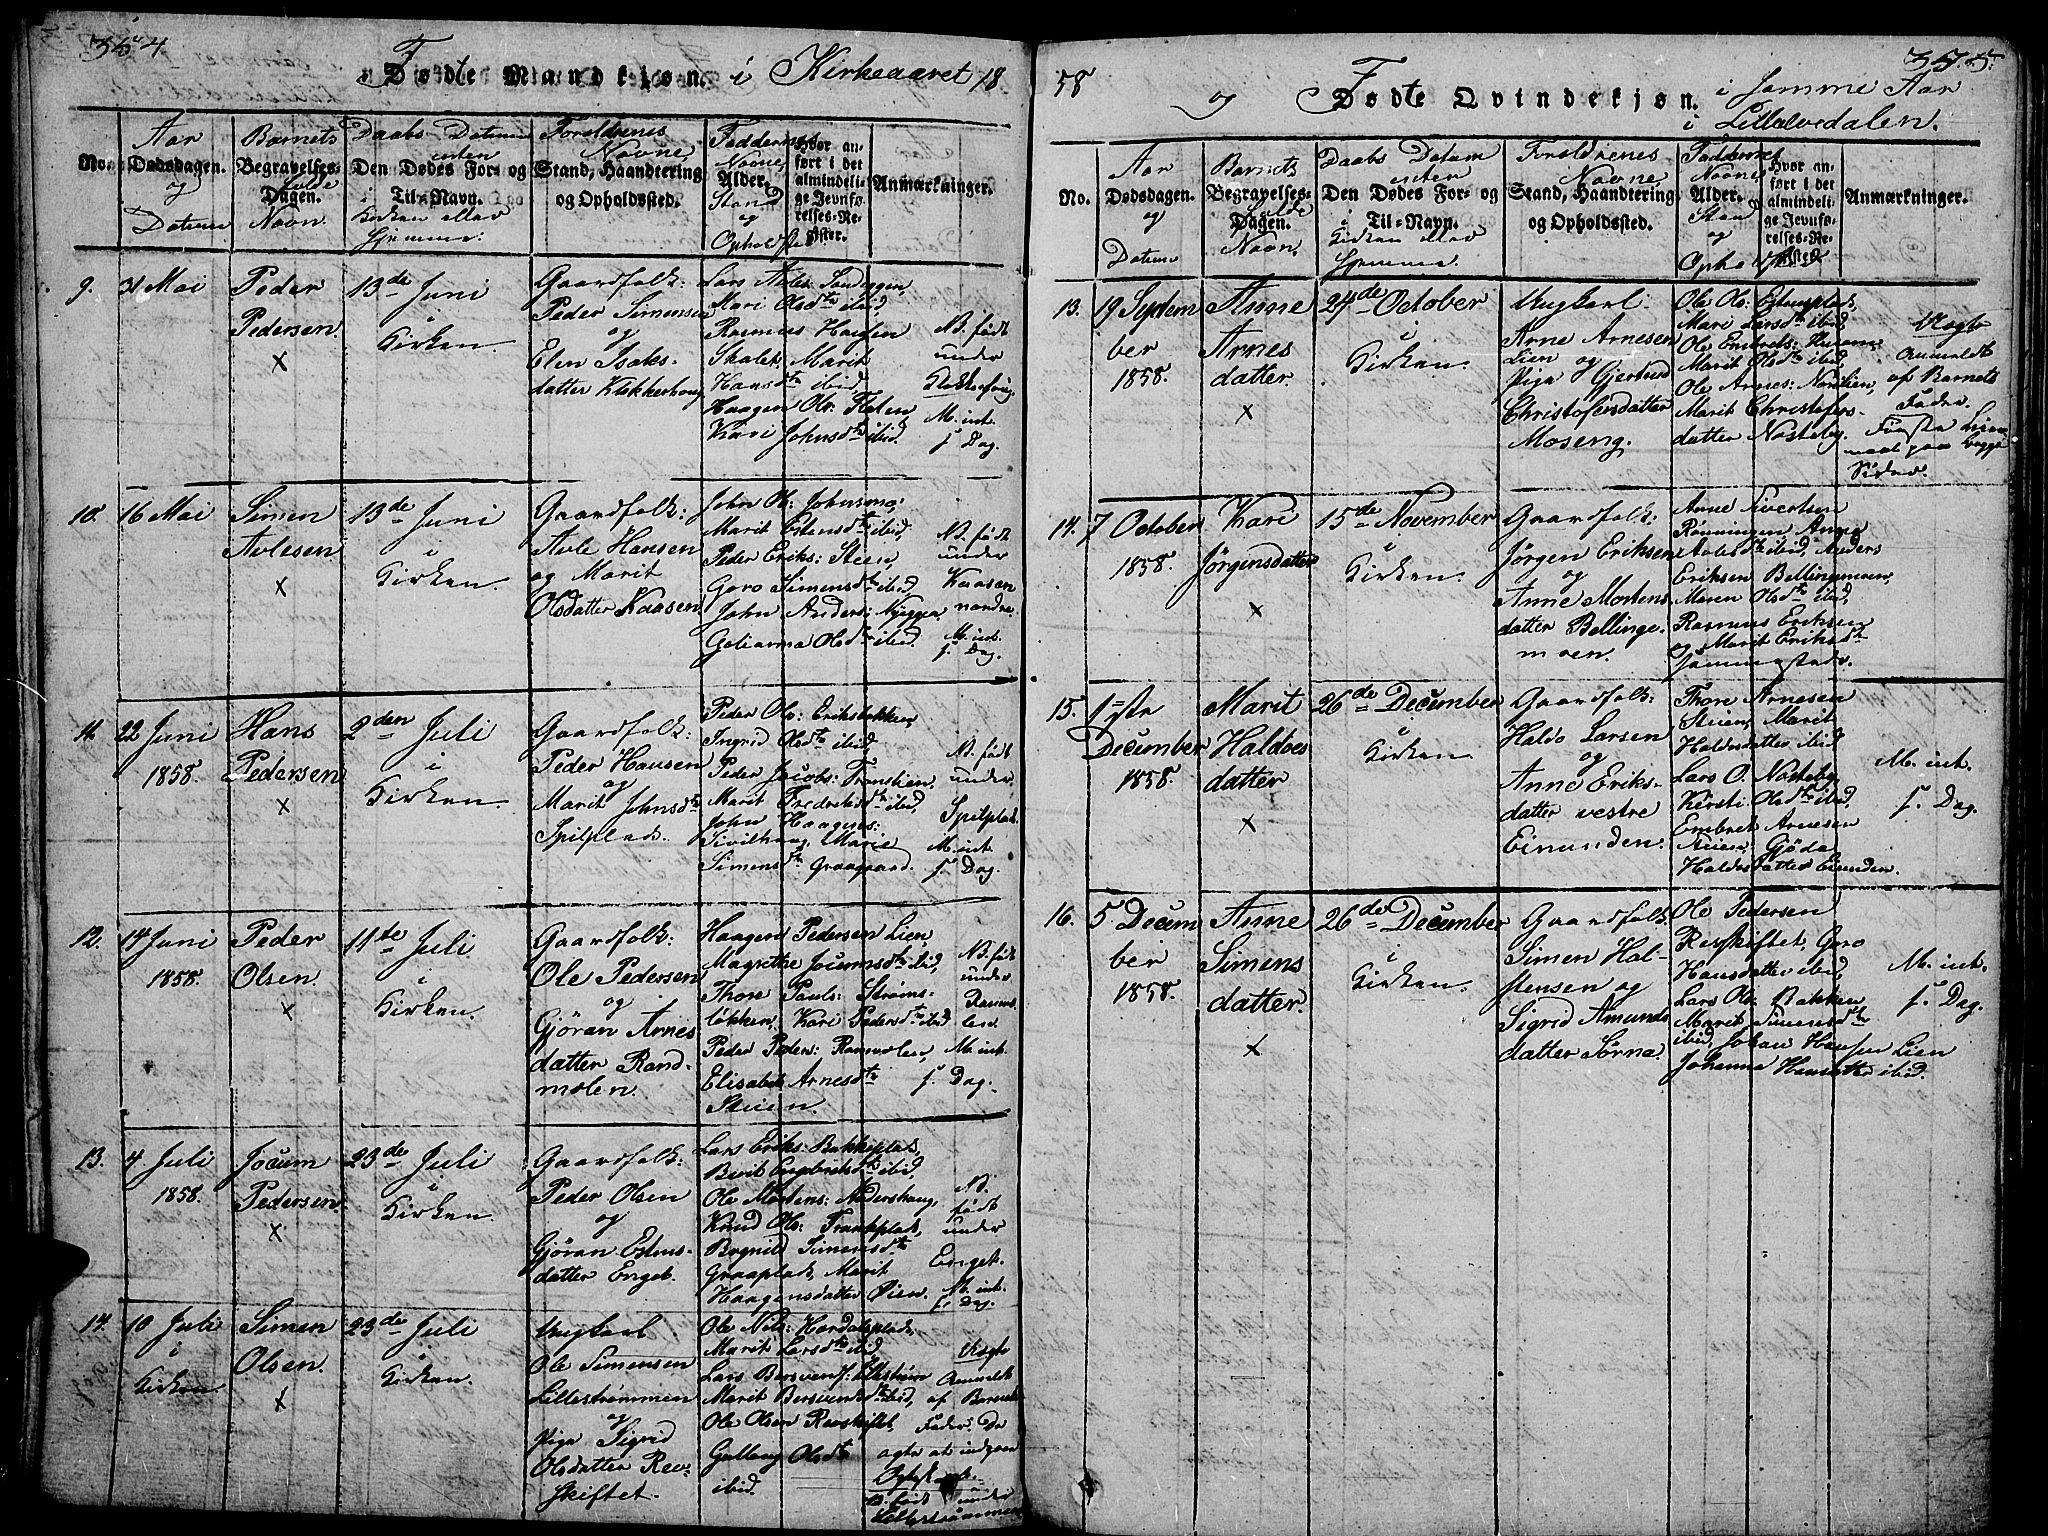 354
Fødte Mandkjøn. i Kirkeaaret 18
No.
Aar
Dødsdagen.
og
Datum
Barnets
Begravelses-
fulde
Dagen.
Navn.
Daabs-Datum
enten
Den Dødes For- og
Til-Navn.
i
Kirken eller
Hjemme.
Forældrenes
Navne,
Stand, Haandtering
og Opholdssted.
Faddernes
Navne,
Alder.
Stand
og
Opholdssted
Hvor an-
ført i det
almindeli-
ge Jevnfø-
relses-Re-
gister.
Anmærkninger.
9.
31 Mai
Peder
Pedersen
×
13de Juni
i
Kirken.
Gaardfolk:
Peder Simensen
og
Elen Isaks-
datter Klokkerhoug
Mari Olsdtr ibid,
Rasmus Hansen
Marit
Hansdtr ibid,
Haagen Ols:
Kari Johnsdtr ibid.
NB. født
under
M. int.
f. Dag.
10.
16 Mai
Simen
Avlesen
×
13de Juni
i
Kirken.
Gaardfolk:
Avle Hansen
og Marit
Olsdatter Kaasen
John Ols: Johnsmo,
Marit Estensdtr ibid,
Peder Eriks: Steen,
Goro Simensdtr ibid,
John Anders: Nygga
Olsdtr ibid.
NB. født
under
Kaasen
nordre.
M. int.
f. Dag.
11.
22 Juni
1858.
Hans
Pedersen
×
2den Juli
i
Kirken.
Gaardfolk:
Peder Hansen
og
Marit Johnsdtr
Spilplads.
Peder Ols: Eriksbakken
Ingrid Olsdtr ibid,
Peder Jacobs: Tronslien,
Marit Fredriksdtr ibid,
John Haagens:
Marie
Simensdtr Graagaard.
NB. født
under
Spilplads.
M. int.
f. Dag.
12.
14 Juni
1858.
Peder
Olsen.
×
11te Juli
i
Kirken.
Gaardfolk:
Ole Pedersen
og
Gjøran Arnes
datter Rand-
mælen.
Haagen Pedersen Lien,
Magrethe Jocumsdtr ibid,
Thore Pauls: Strøms-
løkken, Kari Pedersdtr ibid
Peder Peders:
Elisabeth Arnesdtr
Steien.
NB. født
under
M. int.
f. Dag.
13.
4 Juli
1858.
Jocum
Pedersen.
×
23de Juli
i
Kirken.
Gaardfolk:
Peder Olsen
og
Gjøran Estens-
datter Enget.
Lars Eriks: Bakkeplads,
Berit Engebretsdtr ibid,
Ole Mortens: Andershaug,
Knud Ols:
Simensdtr
Graaplads, Marit
Haagensdatter Øien.
NB.
født
under
Enget.
M. int.
f. Dag.
14.
10 Juli
i
Kirken.
Simen
Olsen.
×
23de Juli
i
Kirken.
Ungkarl
Ole Simensen
Lillestrømmen
og
Pige Sigrid
Olsdatter Rev-
skiftet.
Ole Nils:
Marit Larsdtr ibid
Lars
Marit ibid,
Ole Olsen Revskiftet,
Olsdtr
ibid.
Uægte
Anmeldt
af Barnets
Fader. De
agte at indgaae
NB. født under
Lillestrømmen
58
og Fødte Qvindekjøn. i samme Aar
i Lilleelvedalen.
355.
No.
Aar
Dødsdagen.
og
Datum
Barnets
Begravelses-
fulde
Dagen.
Navn.
Daabs Datum
enten
Den Dødes For- og
Til-Navn.
i
Kirken eller
Hjemme.
Forældrenes
Navne,
Stand, Haandtering
og Opholdssted.
Faddernes
Navne,
Alder.
Stand
og
Opholdssted
Hvor an-
ført i det
almindeli-
ge Jevnfø-
relses-Re-
gister.
Anmærkninger.
13.
19 Septem
ber
1858.
Anne
Arnes
datter.
×
24de October
i
Kirken.
Ungkarl
Arne Arnesen
Lien og
Pige Gjertrud
Christofersdatter
Moseng.
Ole Ols:
Mari Larsdtr ibid,
Ole Embrets:
Marit Olsdtr ibid,
Ole Arnes: Nordlien,
Marit Christofers-
datter Nosteby.
Uægte
Anmeldt
af Barnets
Fader.
Første Leier-
maal paa begge
Sider.
14.
7 October
1858.
Kari
Jørgensdatter
×
15de November
i
Kirken.
Gaardfolk:
Jørgen Eriksen
og
Anne Mortens
datter Bellinge.
moen.
Arne Sivertsen
Rønningen,
ibid, Anders
Eriksen Bellingmoen,
Maren Olsdtr ibid,
Rasmus Eriksen
og Marit Eriksdtr
sammesteds.
15.
1ste
December
1858.
Marit
Haldoes
datter
×
26de December
i
Kirken.
Gaardfolk:
Haldo Larsen
og
Anne Eriks-
datter vestre
Eimunden.
Thore Arnesen
Steien, Marit
Haldosdatter ibid,
Lars O. Nosteby,
Kirsti Olsdtr ibid,
Embret Arnesen
Steien, Gjøda
Haldosdatter Eimunden.
M. int.
f. Dag.
16.
5. Decem
ber
1858.
Anne
Simens
datter.
×
26de December
i
Kirken.
Gaardfolk
Simen Hal-
stensen og
Sigrid Amunds
datter Sørnæ.
Ole Pedersen
Revskiftet, Goro
Hansdatter ibid,
Lars Ols: Bakken,
Marit Simensdtr
ibid, Johan Hansen Lien
Johanna Hansdatter ibid.
M. int.
f. Dag.